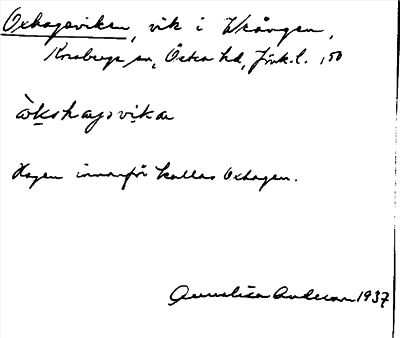 Oxhagsviken, vik i Vrången,
Korsberga sn, Östra hd, Jönk. l. ,50
òkshagsvika
Hagen innanför kallas Oxhagen.
Annelisa Anderson 1937